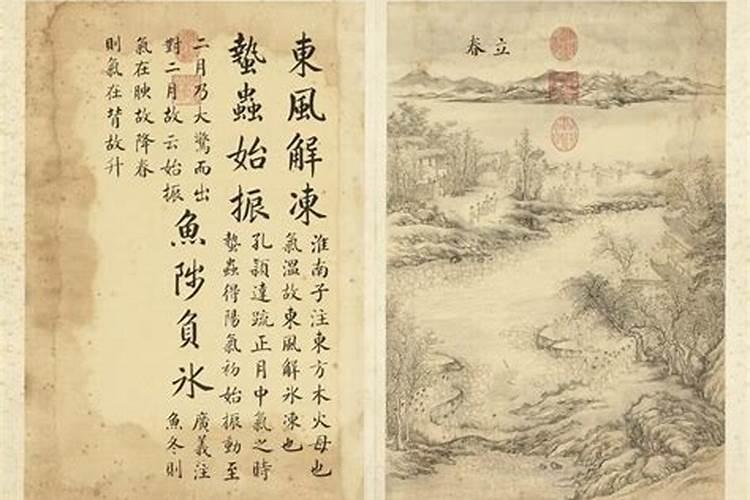 立春
東風解凍
淮南子注東方木火母也
氣溫故東風解氷凍也
蟄蟲始振
孔穎達疏正月中氣之時
蟄蟲得陽氣初始振動至
二月乃大驚而出
對二月故云始振
魚陟負氷
廣義注
魚冬則
氣在腴故降春
則氣在背故升